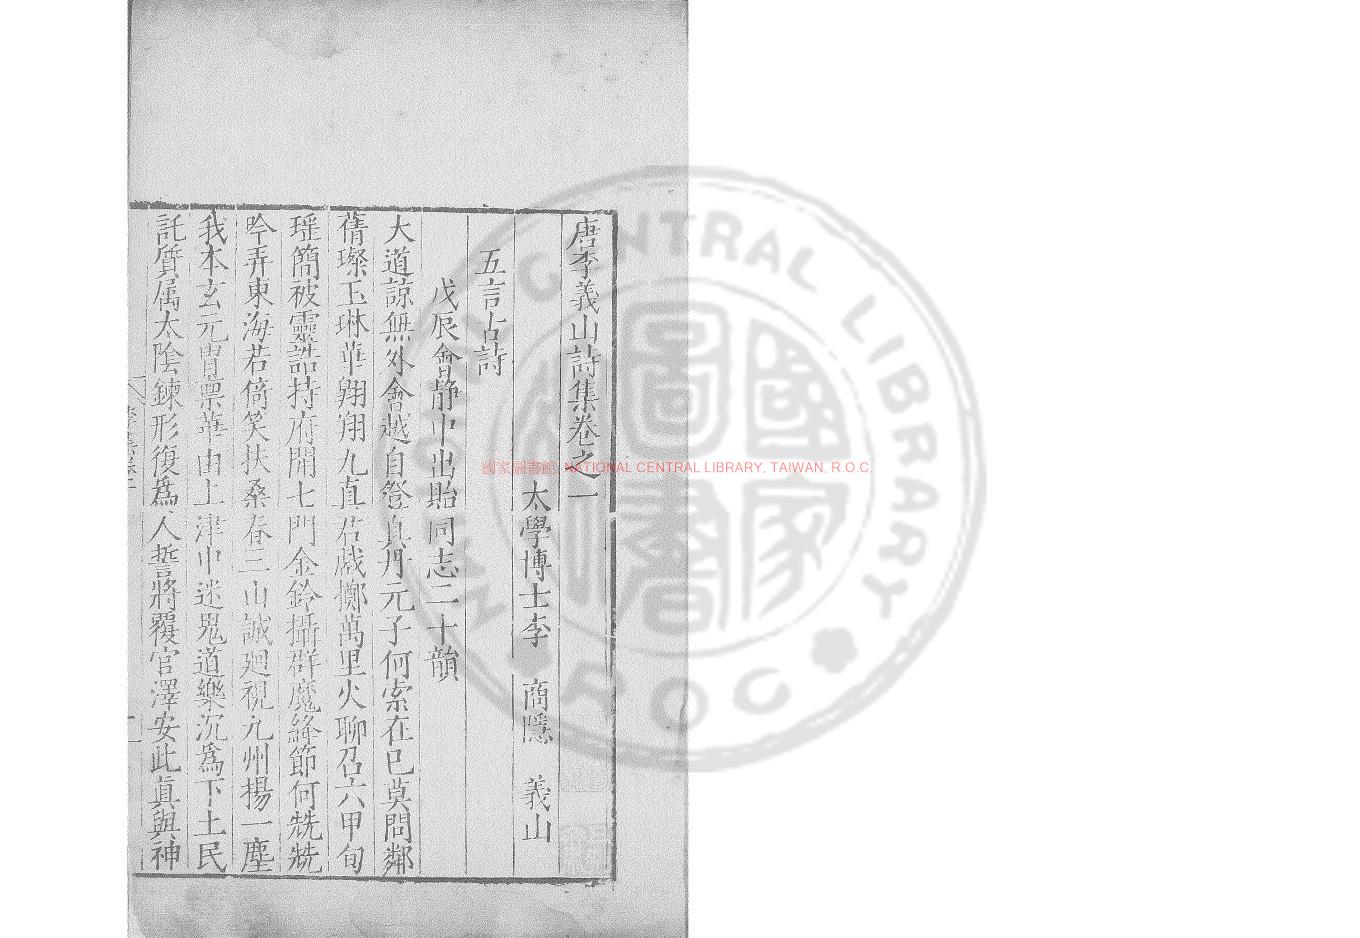 唐李義山詩集卷之一
太學博士李 商隱 義山
五言古詩
戊辰會靜中出貽同志二十韻
大道諒無外會越自登真丹元子何索在已莫問鄰
蒨璨玉琳華翱翔九真君戲擲萬里火聊召六甲旬
瑶簡被靈誥持府開七門金鈴攝群魔絳節何兟兟
吟弄東海若倚笑扶桑春三山誠迥視九州揚一塵
我本玄元胄禀華由上津中迷鬼道樂沉為下土民
託質属太陰鍊形復為人誓將覆官澤安此真與神
國家圖書館 NATIONAL CENTRAL LIBRARY, TAIWAN, R.O.C.
NATIONAL CENTRAL LIBRARY
ROC
國家圖書